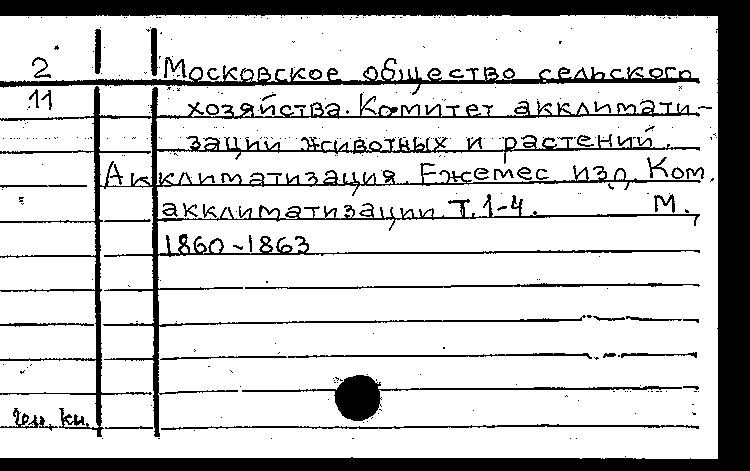 2 Московское общество сельского
11 хозяйства. Комитет акклимати-
зации животных и растений.
Акклиматизация. Ежемес изд. Ком.
акклиматизации. Т. 1-4. М.,
1860-1863
кн.